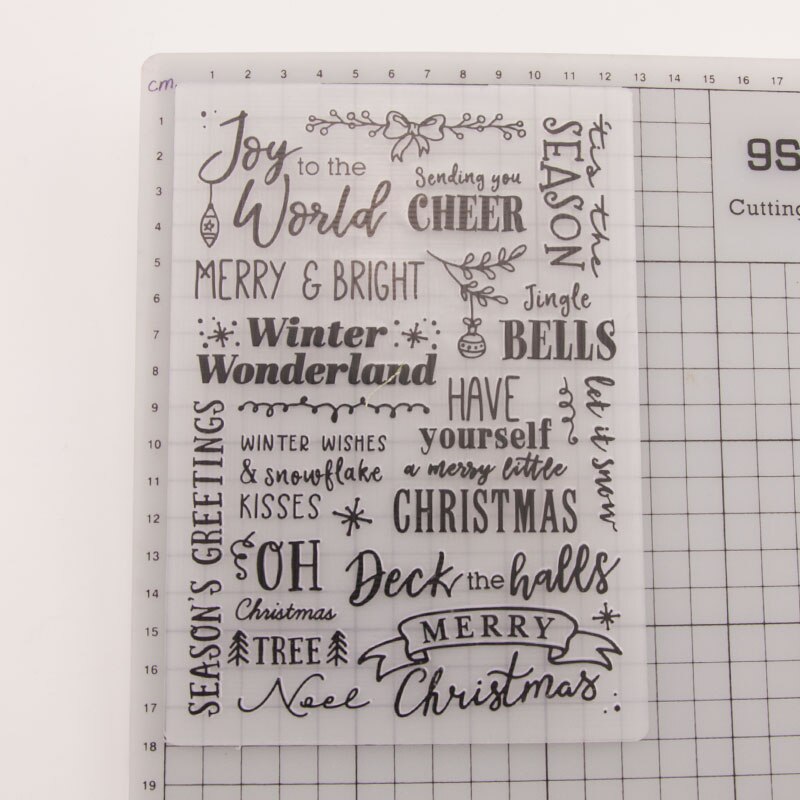 cm.
1 2 3 4 5 6 7 8 9 10 11 12 13 14 15 16 17
1
2
3
4
5
6
7
8
9
10
11
12
13
14
15
16
17
18
19
Joy to the
World
Sending you
CHEER
'tis the
SEASON
MERRY & BRIGHT
Jingle
BELLS
Winter
Wonderland
HAVE
yourself
a merry little
CHRISTMAS
let it snow
SEASON'S GREETINGS
WINTER WISHES
& snowflake
KISSES
OH
Christmas
TREE
Deck the halls
MERRY
Christmas
Noel
9S
Cutting